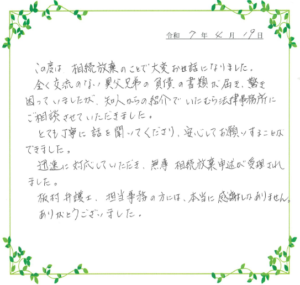 令和 7 年 4 月 19 日
この度は 相続放棄のことで大変お世話になりました。
全く交流のない異父兄弟の負債の書類が届き、驚き
困っていましたが、知人からの紹介でいたむら法律事務所に
ご相談させていただきました。
とても丁寧に話を聞いてくださり、安心してお願いすることが
できました。
迅速に対応していただき、無事 相続放棄申述が受理され
ました。
板村弁護士、担当事務の方には、本当に感謝しかありません。
ありがとうございました。